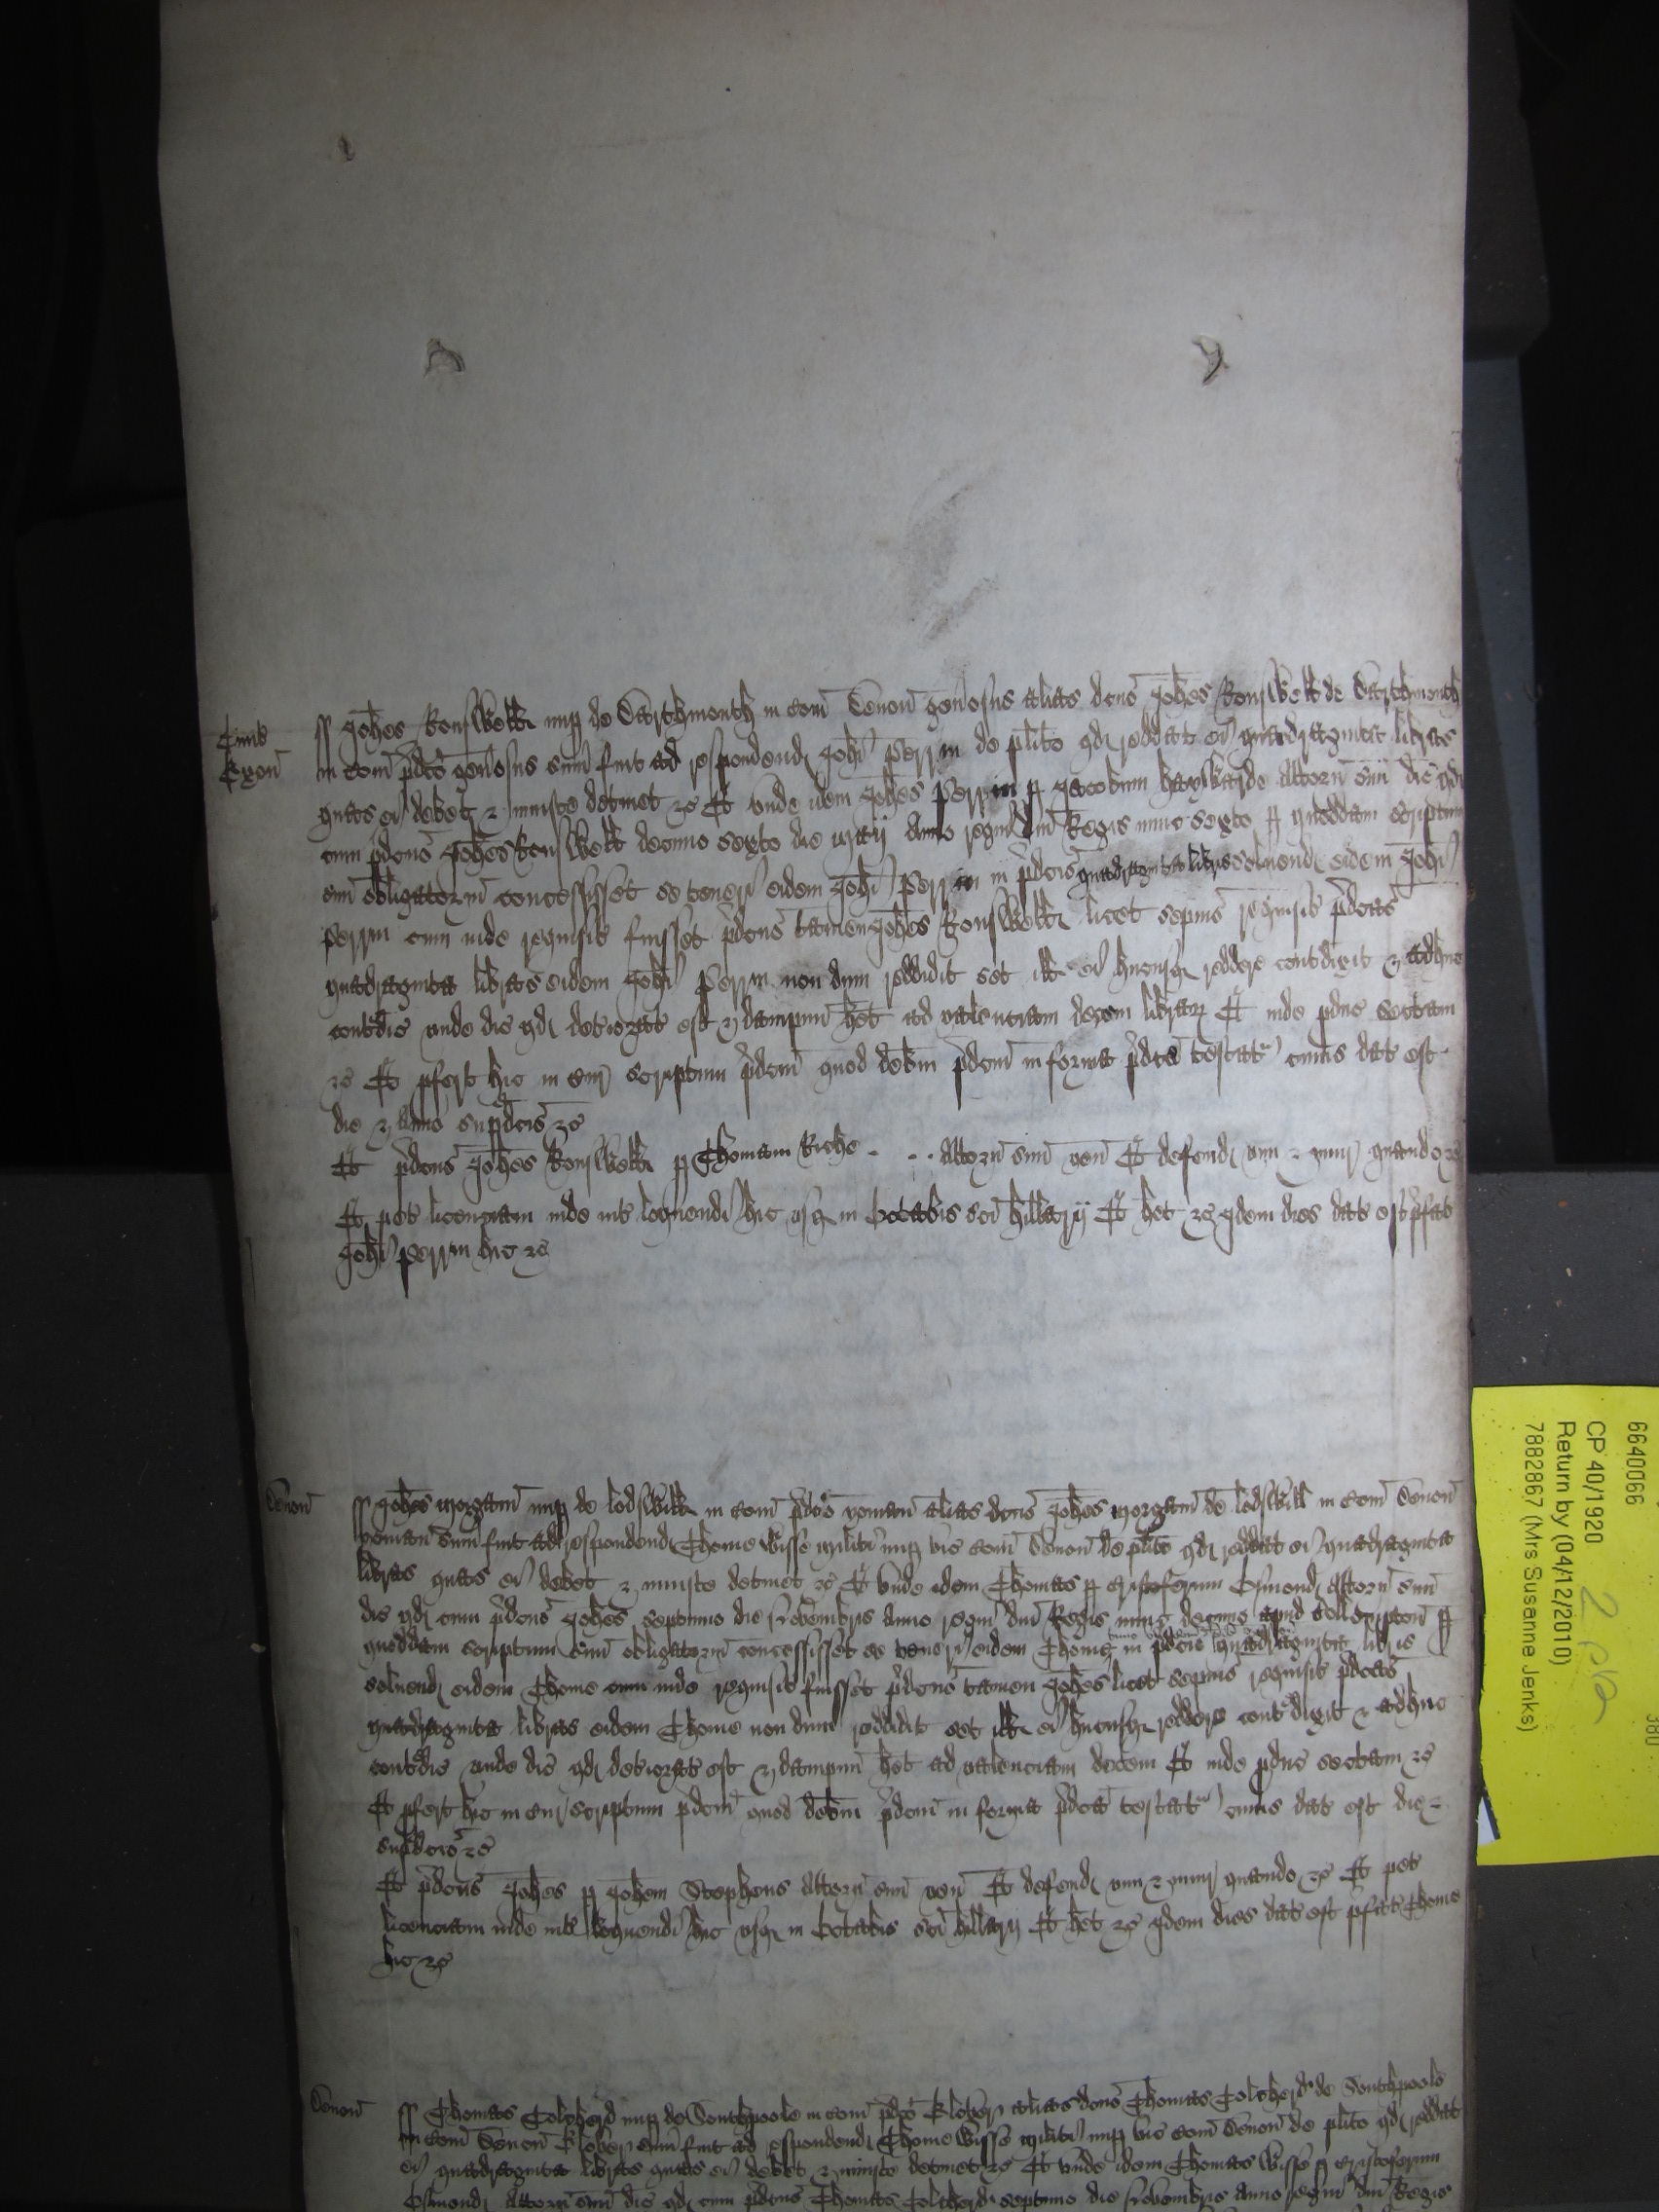 Civit
Exon
ss Johes Kouswelle nup de Darthmouth in com Devon generosus alias dcus Johes Kouswell de Darthmouth
in com pdco generosus sum fuit ad respondend Johi Perrin de plito qd reddat ei quadraginta libras
quas ei debet & iniuste detinet &c Et unde idem Johes Perrin p Jacobum Haywarde Attorn suu dic qd
cum pdcus Johes Kouswell decimo sexto die Maij Anno regni dni Regis nunc sexto p quoddam scriptum
suu obligatoriu concessisset se teneri eidem Johi Perrin in pdcis quadraginta libris solvend eidem Johi
Perrin cum inde requisit fuisset pdcus tamen Johes Kouswelle licet sepius requisit pdcas
quadraginta libras eidem Johi Perrin non dum reddidit set ill ei hucusq reddere contdixit & adhuc
contdic unde dic qd deteriorat est & dampnu het ad valenciam decem librar Et inde pduc sectam
&c Et pfert hic in cur scriptum pdcm quod debm pdcm in forma pdca testat cuius dat est
die & anno supdcis &c
Et pdcus Johes Kouswelle p Thomam Riche Attorn suu ven Et defend vim & iniur quando &c
Et pet licenciam inde int loquendi hic usq in Octabis sci Hillarij Et het &c Idem dies dat est pfat
Johi Perrin hic &c
Devon
ss Johes Morgam nup de lodswill in com pdco yoman alias dcus Johes Morgam de lodswill in com Devon
yoman sum fuit ad respondend Thome Wisse militi nup vic com Devon de plito qd reddat ei quadraginta
libras quas ei debet & iniuste detinet &c Et unde idem Thomas p Cristoferum Osmond Attorn suu
dic qd cum pdcus Johes septimo die Novembris anno regni dni Regis nunc decimo apud p
quoddam scriptum suu obligatoriu concessisset se teneri eidem Thome in pdcis quadraginta libris
solvend eidem Thome cum inde requisit fuisset pdcus tamen Johes licet sepius requisit pdcas
quadraginta libras eidem Thome non dum reddidit set ill ei hucusq reddere contdixit & adhuc
contdic unde dic qd deteriorat est & dampnu het ad valenciam decem Et inde pduc sectam &c
Et pfert hic in cur scriptum pdcm quod debm pdcm in forma pdca testat cuius dat est die &
supdcis &c
Et pdcus Johes p Johem Stephens Attorn suu ven Et defend vim & iniur quando &c Et pet
licenciam inde int loquendi hic usq in Octabis sci Hillarij Et het &c Idem dies dat est pfat Thome
hic &c
Devon
ss Thomas Colcherd nup de Southpoole in com pdco alias dcus Thomas Colcherd de Southpoole
in com Devon sum fuit ad respondend Thome Wisse militi nup vic com Devon de plito qd reddat
ei quadraginta libras quas ei debet & iniuste detinet &c Et unde idem Thomas Wisse p Cristoferum
Osmond Attorn suu dic qd cum pdcus Thomas Colcherd septimo die Novembris anno regni dni Regis
6640066
CP 40/1920
Return by (04/12/2010)
7882867 (Mrs Susanne Jenks)